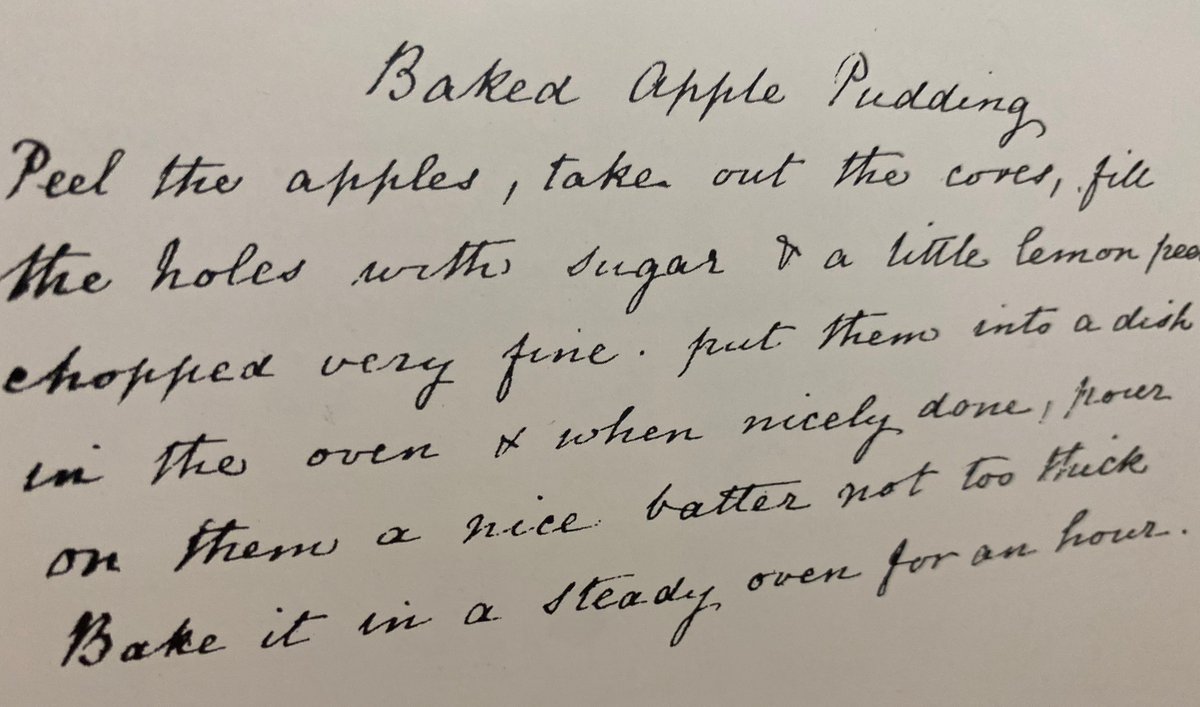 Baked Apple Pudding
Peel the apples, take out the cores, fill
the holes with sugar & a little lemon pee
chopped very fine. put them into a dish
in the oven & when nicely done, pour
on them a nice batter not too thick
Bake it in a steady oven for an hour.